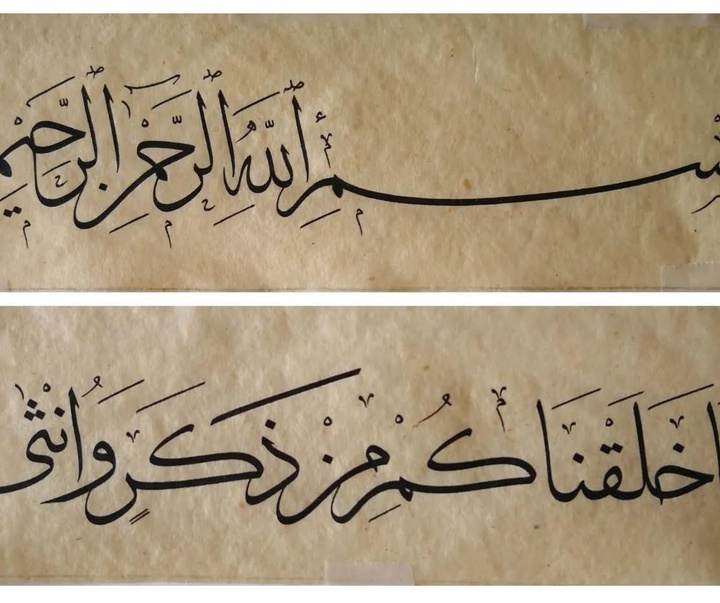 ـسم الله الرحمن الرحيم
ا خلقناكم من ذكر وانثى